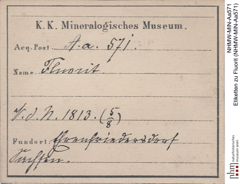 K. K. Mineralogisches Museum.
Acq. Post A. a. 571.
Name Fluorit.
V. d. N. 1813. (5/8)
Fundort: Ehrenfriedersdorf
Sachsen.
NHMW-MIN-Aa571
Etiketten zu Fluorit (NHMW-MIN-Aa571)
nhm